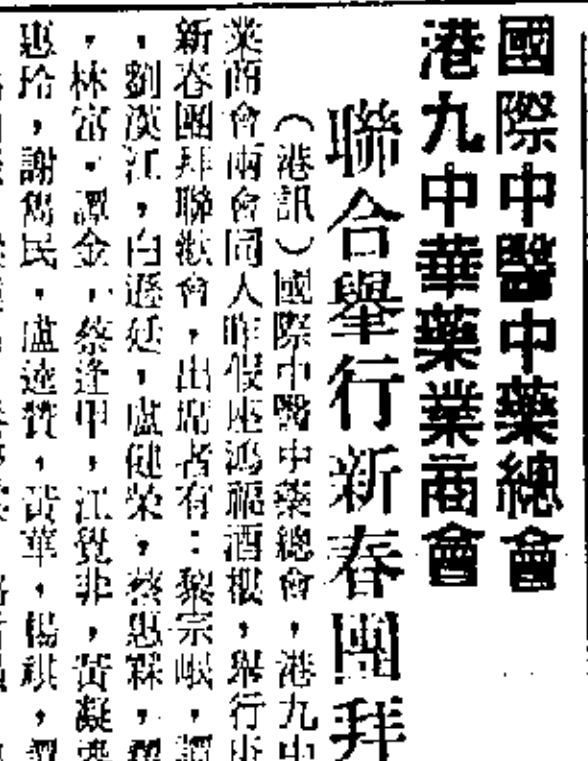 國際中醫中藥總會
港九中華藥業商會
聯合舉行新春團拜
（港訊）國際中醫中藥總會，港九中
業商會兩會同人昨假座鴻福酒樓，舉行
新春團拜聯歡會，出席者有：黎宗岷，譚
，劉漢江，白遜廷，盧健榮，蔡惠霖，
，林富，譚金，蔡逢甲，江覺非，黃凝
惠玲，謝儁民，盧達贊，黃華，楊祺，譚